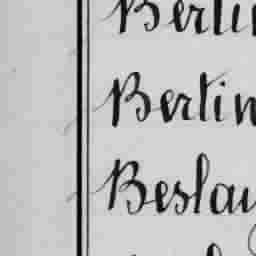 Bertin
Bertin
Beslau